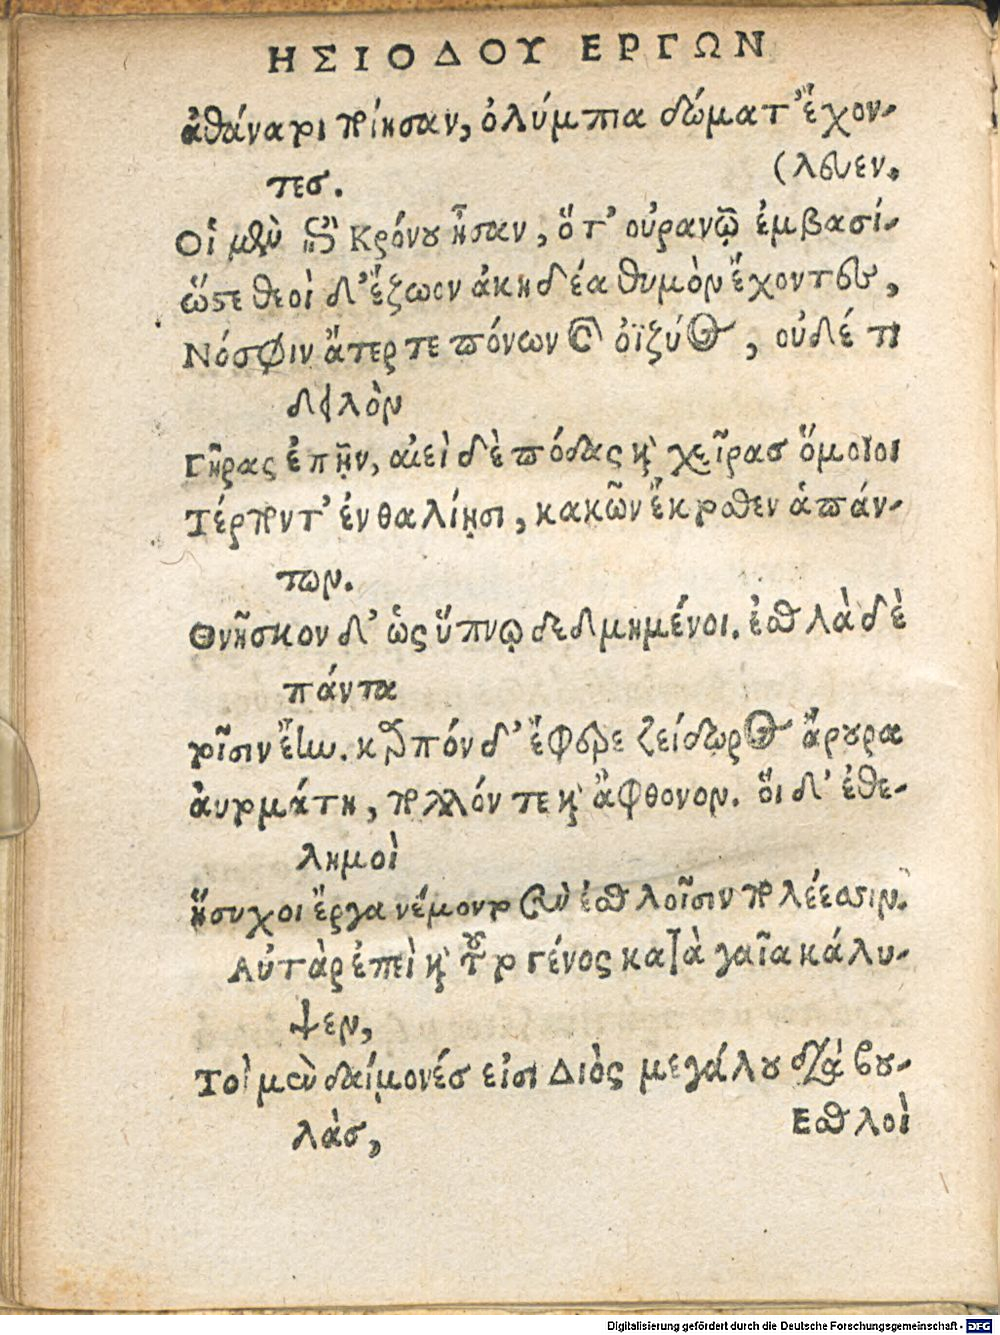 ΗΣΙΟΔΟΥ ΕΡΓΩΝ
ἀθάνατοι ποίησαν, ὀλύμπια δώματ' ἔχον-
τες.
(λευεν.
Οἱ μὲν ἐπὶ Κρόνου ἦσαν, ὅτ' οὐρανῷ ἐμβασί-
ὥστε θεοὶ δ' ἔζωον ἀκηδέα θυμὸν ἔχοντες,
Νόσφιν ἄτερ τε πόνων καὶ ὀϊζύος, οὐδέ τι
δειλὸν
Γῆρας ἐπῆν, αἰεὶ δὲ πόδας καὶ χεῖρας ὅμοιοι
Τέρποντ' ἐν θαλίῃσι, κακῶν ἔκτοσθεν ἁπάν-
των.
Θνῆσκον δ' ὡς ὕπνῳ δεδμημένοι. ἐσθλὰ δὲ
πάντα
τοῖσιν ἔην. καρπὸν δ' ἔφερε ζείδωρος ἄρουρα
αὐτομάτη, πολλόν τε καὶ ἄφθονον. οἱ δ' ἐθε-
λημοὶ
ἥσυχοι ἔργα νέμοντο σὺν ἐσθλοῖσιν πολέεσσιν.
Αὐτὰρ ἐπεὶ καὶ τοῦτο γένος κατὰ γαῖα κάλυ-
ψεν,
Τοὶ μὲν δαίμονές εἰσι Διὸς μεγάλου διὰ βου-
λὰς,
Εσθλοὶ
Digitalisierung gefördert durch die Deutsche Forschungsgemeinschaft - DFG